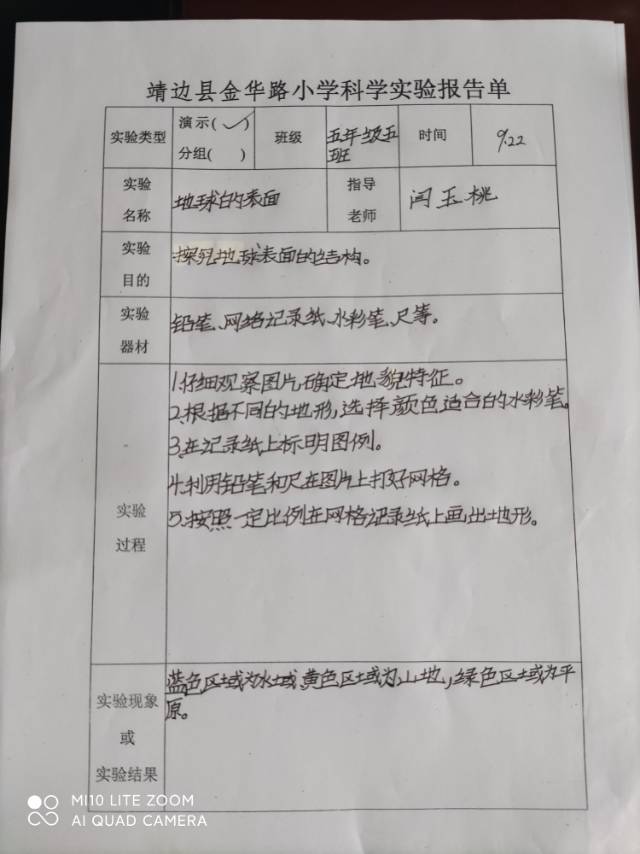 靖边县金华路小学科学实验报告单
实验类型 演示(✓) 分组( ) 班级 五年级五班 时间 9.22
实验名称 地球的表面 指导老师 闫玉桃
实验目的 探究地球表面的结构。
实验器材 铅笔、网络记录纸、水彩笔、尺等。
实验过程
1.仔细观察图片,确定地貌特征。
2.根据不同的地形,选择颜色适合的水彩笔。
3.在记录纸上标明图例。
4.利用铅笔和尺在图片上打好网格。
5.按照一定比例在网格记录纸上画出地形。
实验现象或实验结果
蓝色区域为水域,黄色区域为山地,绿色区域为平
原。
MI10 LITE ZOOM
AI QUAD CAMERA